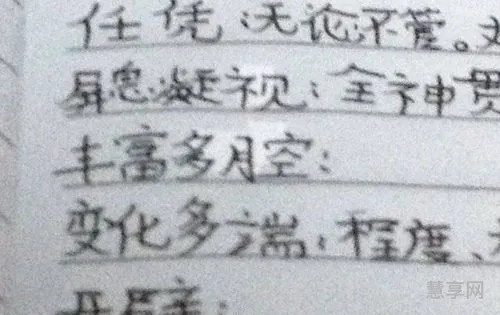 任凭:无论不管。
屏息凝视:全神贯
丰富多月空:
变化多端:程度、
慧享网